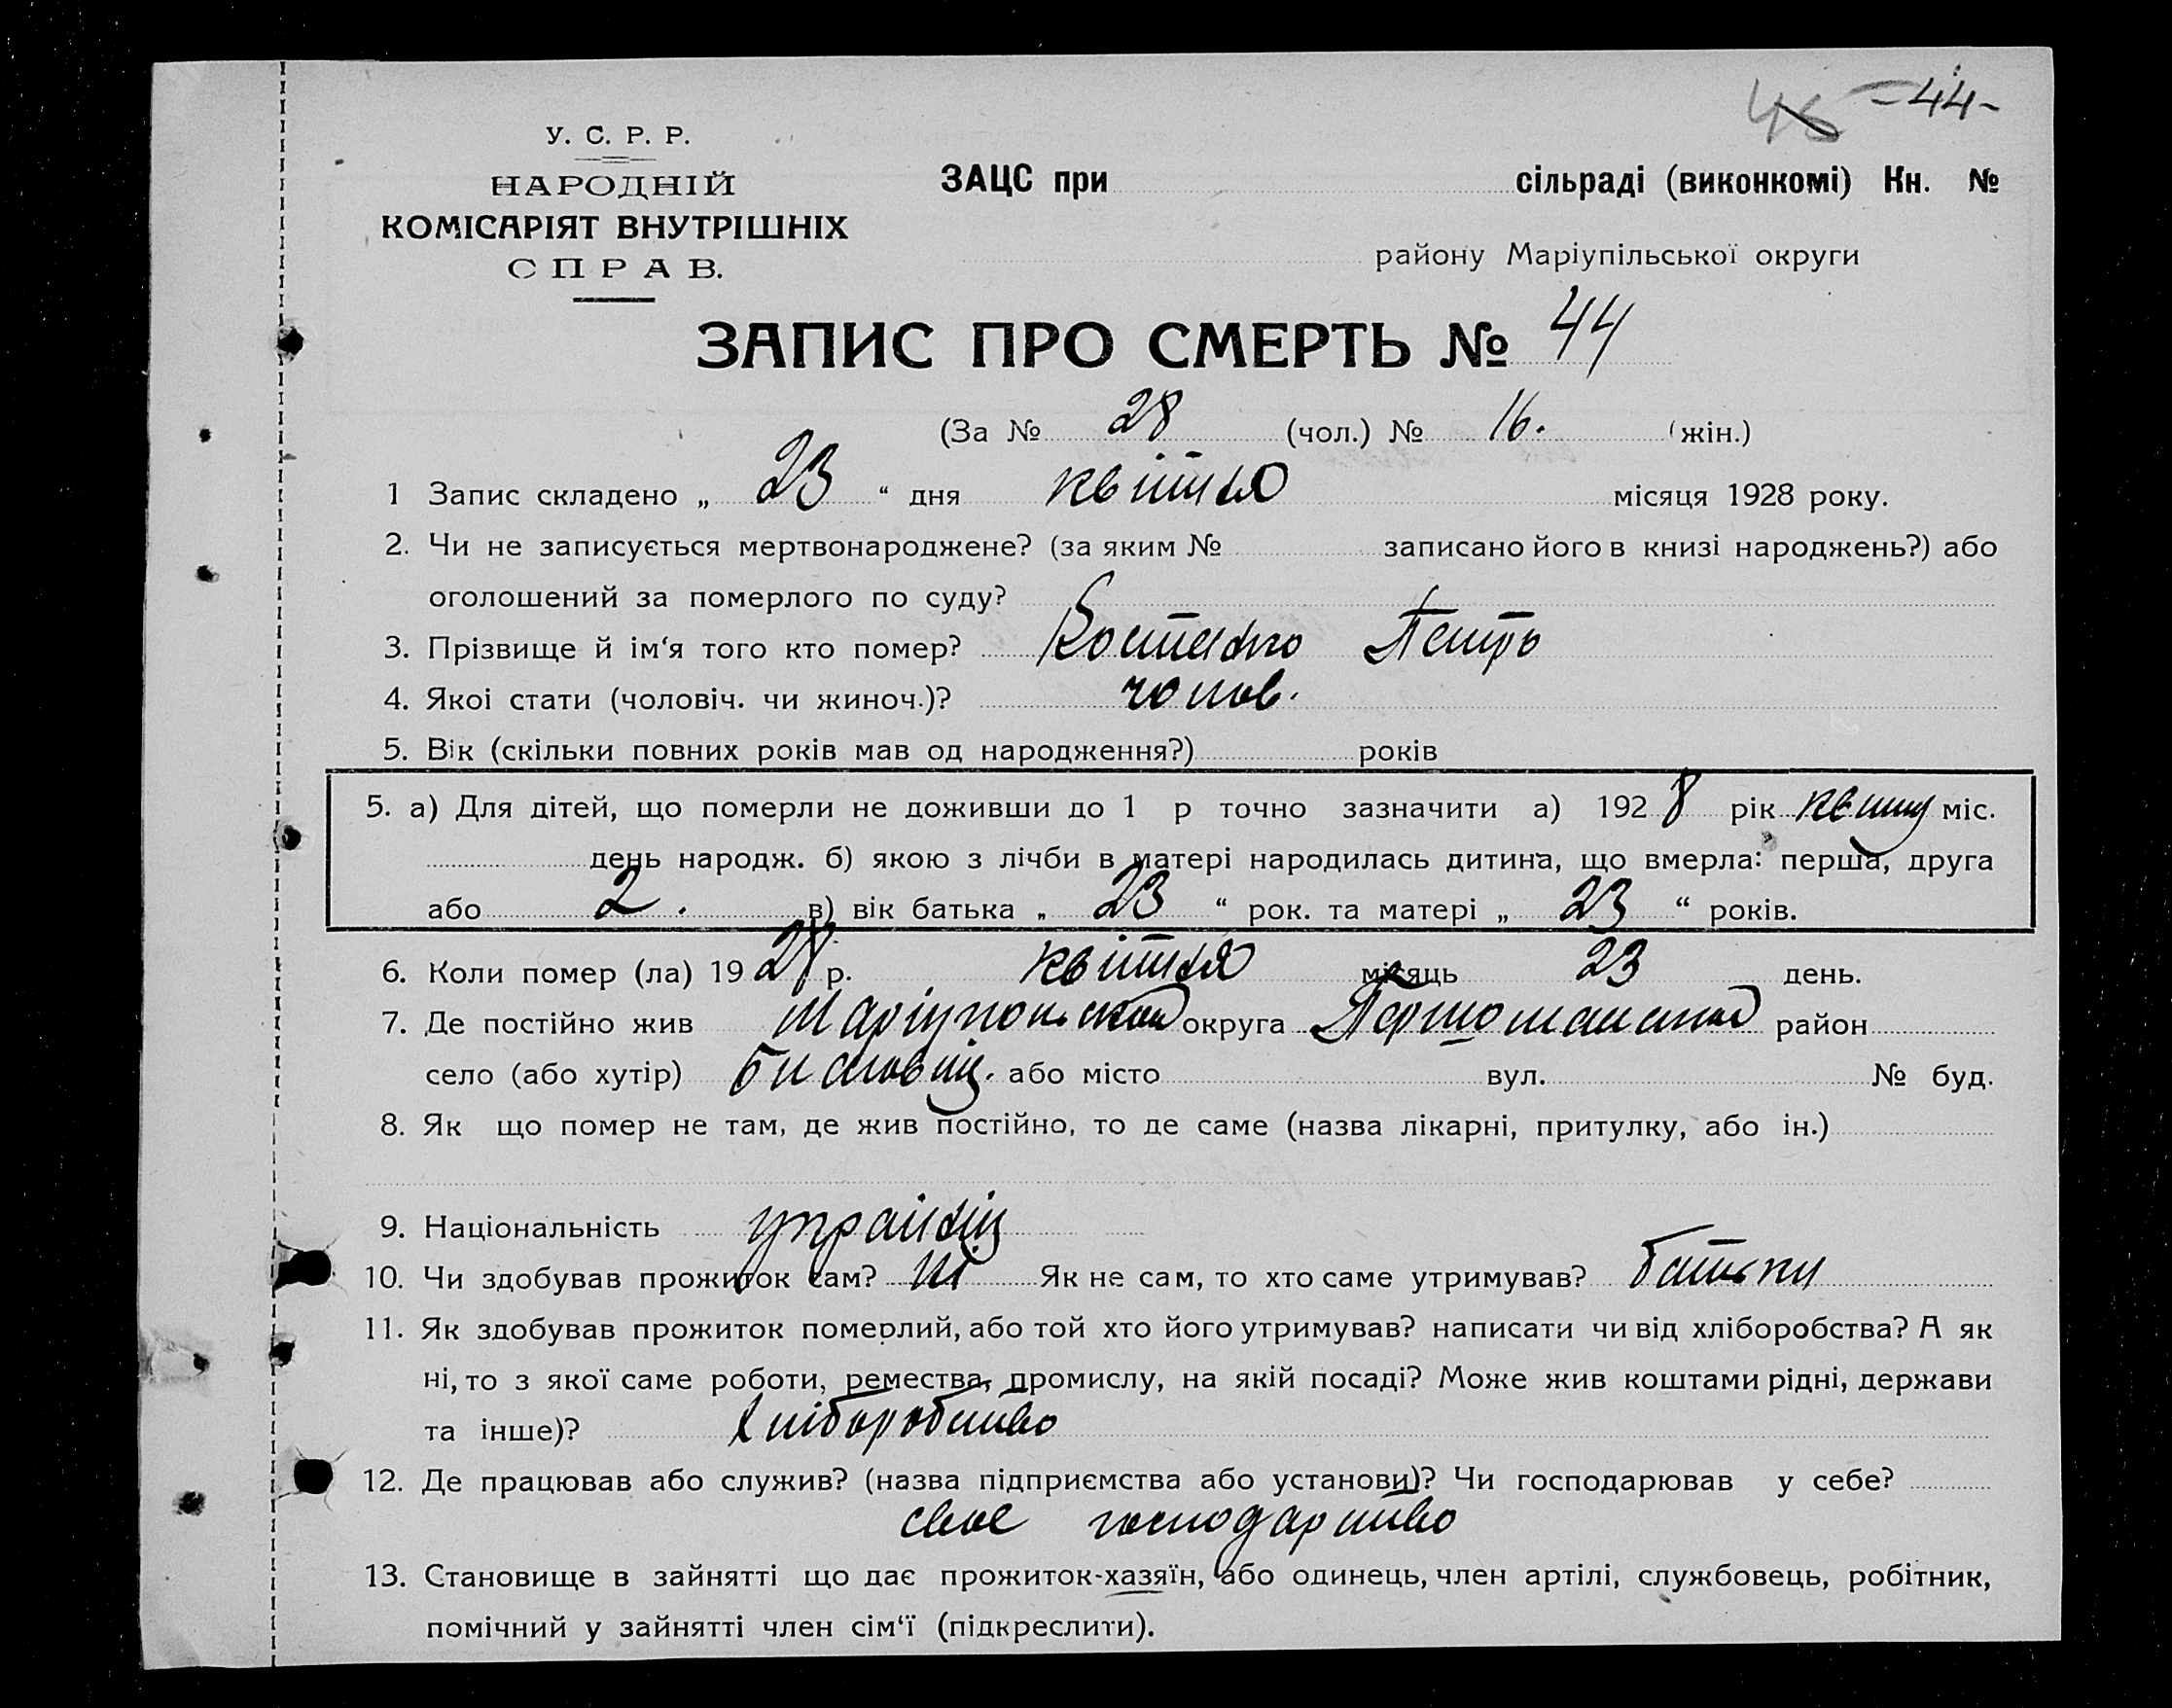 46 -44-
У. С. Р. Р.
НАРОДНІЙ
КОМІСАРІЯТ ВНУТРІШНІХ
СПРАВ.
ЗАЦС при сільраді (виконкомі) Кн. №
району Маріупільської округи
ЗАПИС ПРО СМЕРТЬ № 44
(За № 28 (чол.) № 16. (жін.)
1 Запис складено „ 23 “ дня квітня місяця 1928 року.
2. Чи не записується мертвонароджене? (за яким № записано його в книзі народжень?) або
оголошений за померлого по суду?
3. Прізвище й ім‘я того кто помер? Костенко Петро
4. Якоі стати (чоловіч. чи жиноч.)? чолов.
5. Вік (скільки повних років мав од народження?) років
5. а) Для дітей, що померли не доживши до 1 р точно зазначити а) 1928 рік міс.
день народж. б) якою з лічби в матері народилась дитина, що вмерла: перша, друга
або 2. в) вік батька „ 23 “ рок. та матері „ 23 “ років.
6. Коли помер (ла) 1928 р. квітня місяць 23 день.
7. Де постійно жив округа район
село (або хутір) або місто вул. № буд.
8. Як що помер не там, де жив постійно, то де саме (назва лікарні, притулку, або ін.)
9. Національність українц
10. Чи здобував прожиток сам? ні Як не сам, то хто саме утримував? батьки
11. Як здобував прожиток померлий, або той хто його утримував? написати чи від хліборобства? А як
ні, то з якої саме роботи, ремества, промислу, на якій посаді? Може жив коштами рідні, держави
та інше)? хліборобство
12. Де працював або служив? (назва підприємства або установи)? Чи господарював у себе?
своє господарство
13. Становище в зайнятті що дає прожиток-хазяїн, або одинець, член артілі, службовець, робітник,
помічний у зайнятті член сім‘ї (підкреслити).